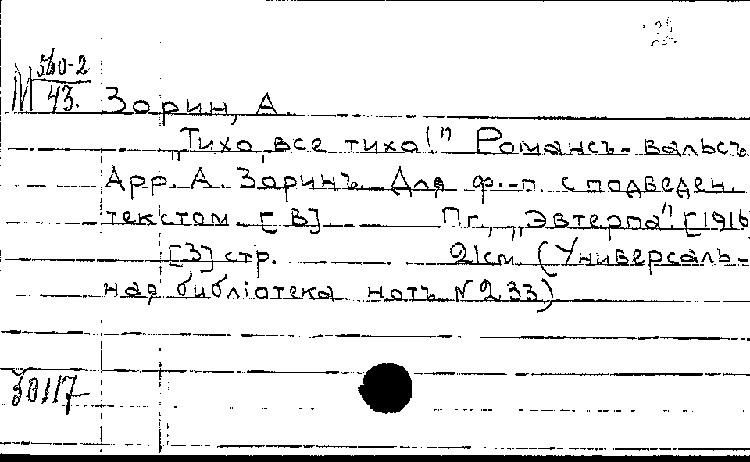 М 560-2
43.
Зорин, А.
„Тихо, все тихо!" Романсъ-вальсъ
Арр. А. Заринъ. Для ф.-п. с подведен.
текстом. [В] Пг., „Эвтерпа". [1916
[3] стр. 21 см. (Универсаль-
ная библiотека нотъ №233)
30117